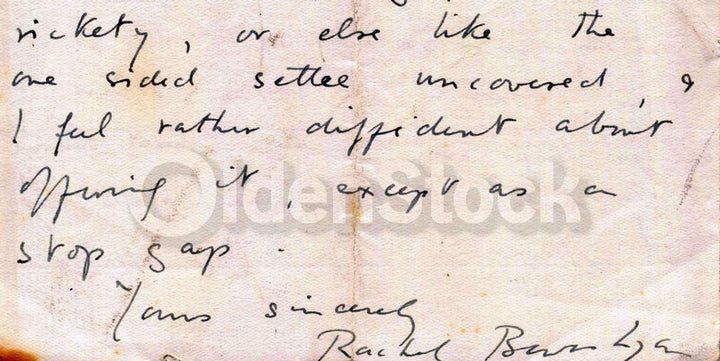 rickety, or else like the
one sided settee uncovered, &
I feel rather diffident about
offering it, except as a
OldenStock
stop gap.
Yours sincerely
Rachel